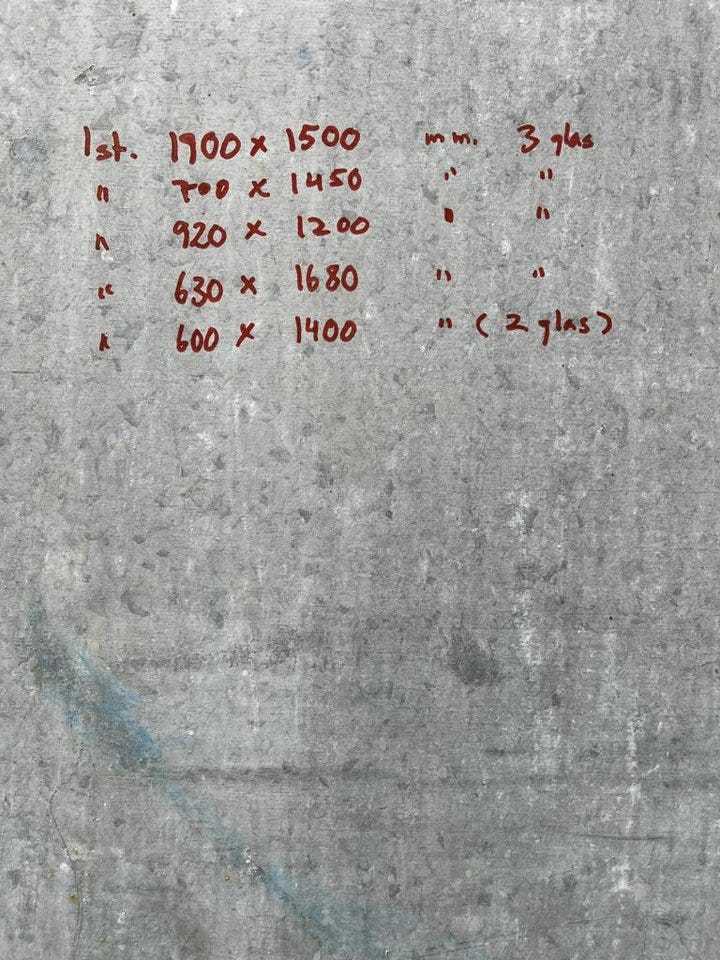 1st. 1900 x 1500 mm. 3 glas
" 700 x 1450 " "
" 920 x 1200 " "
" 630 x 1680 " "
" 600 x 1400 " (2 glas)